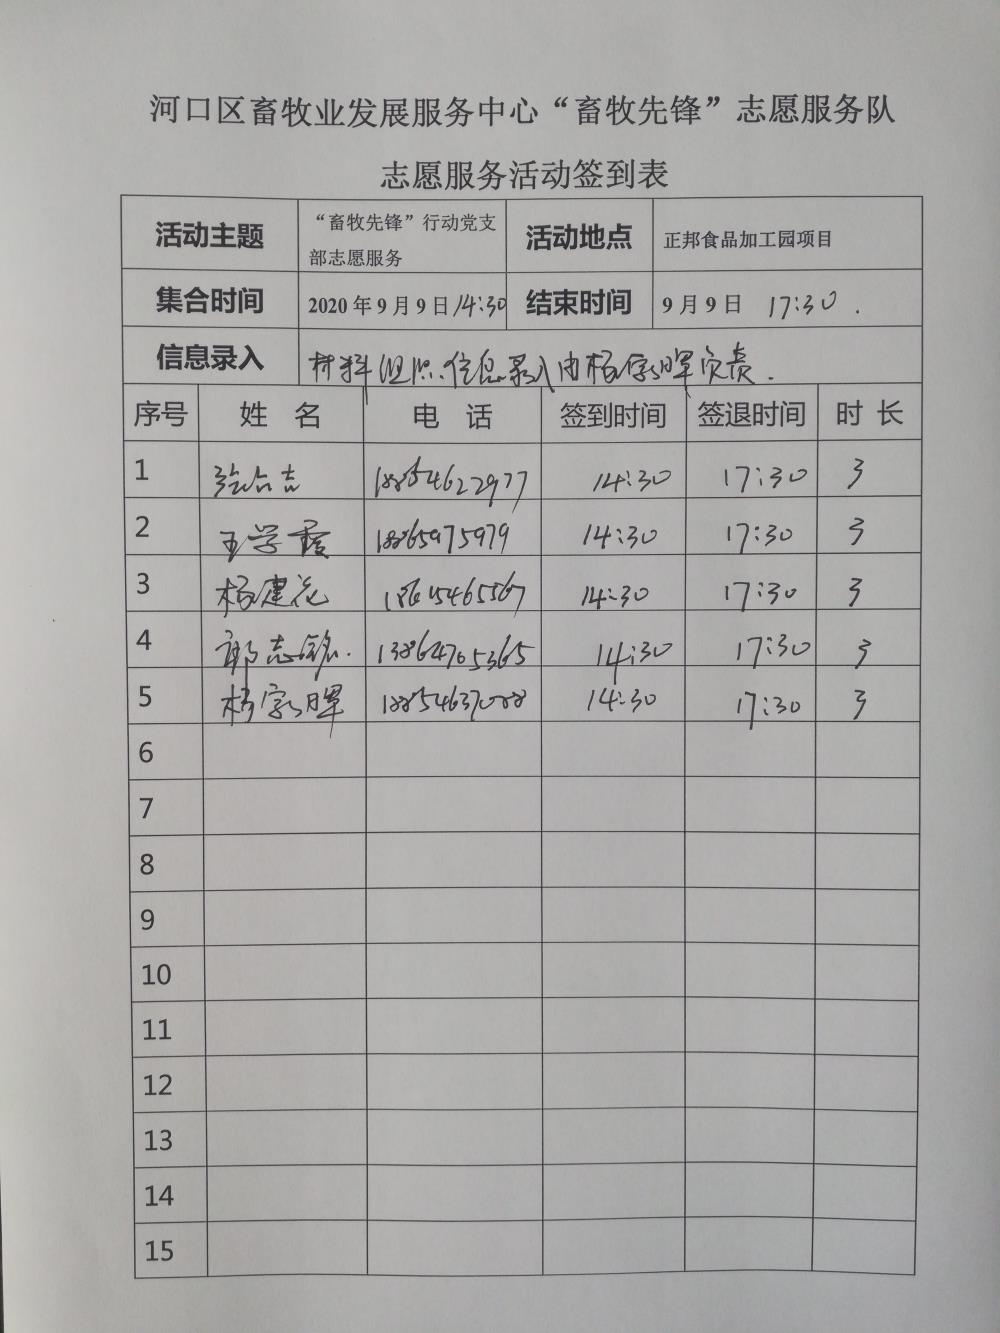 河口区畜牧业发展服务中心“畜牧先锋”志愿服务队
志愿服务活动签到表
活动主题 “畜牧先锋”行动党支部志愿服务 活动地点 正邦食品加工园项目
集合时间 2020年9月9日14:30 结束时间 9月9日 17:30.
信息录入 材料组织、信息录入由杨家晖负责.
序号 姓名 电话 签到时间 签退时间 时长
1 18854622977 14:30 17:30 3
2 王学霞 18865975979 14:30 17:30 3
3 杨建花 14:30 17:30 3
4 郭志铭. 13864705365 14:30 17:30 3
5 杨家晖 18854637088 14:30 17:30 3
6
7
8
9
10
11
12
13
14
15